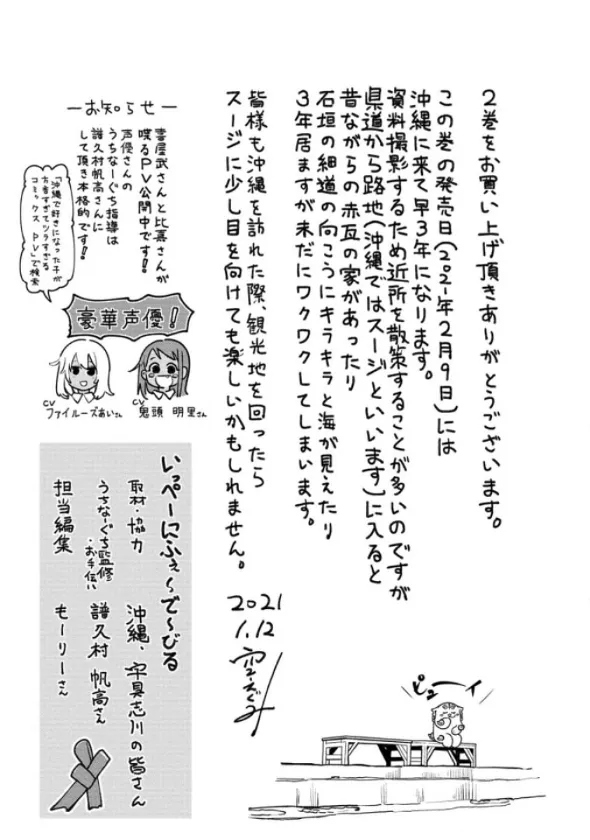 2巻をお買い上げ頂きありがとうございます。
この巻の発売日(2021年2月9日)には
沖縄に来て早3年になります。
資料撮影するため近所を散策することが多いのですが
県道から路地(沖縄ではスージといいます)に入ると
昔ながらの赤瓦の家があったり
石垣の細道の向こうにキラキラと海が見えたり
3年居ますが未だにワクワクしてしまいます。
皆様も沖縄を訪れた際、観光地を回ったら
スージに少し目を向けても楽しいかもしれません。
2021
1.12
空えぐみ
ピューイ
―お知らせ―
喜屋武さんと比嘉さんが
喋るPV公開中です!!
声優さんの
うちなーぐち指導は
譜久村帆高さんに
して頂き本格的です!!
「沖縄で好きになった子が
方言すぎてツラすぎる
コミックス PV」で検索
豪華声優!
CV
鬼頭 明里さん
CV
ファイルーズあいさん
いっぺーにふぇ〜で〜びる
取材・協力
沖縄、宇具志川の皆さん
うちなーぐち監修
・お手伝い
譜久村 帆高さん
担当編集
もーりーさん